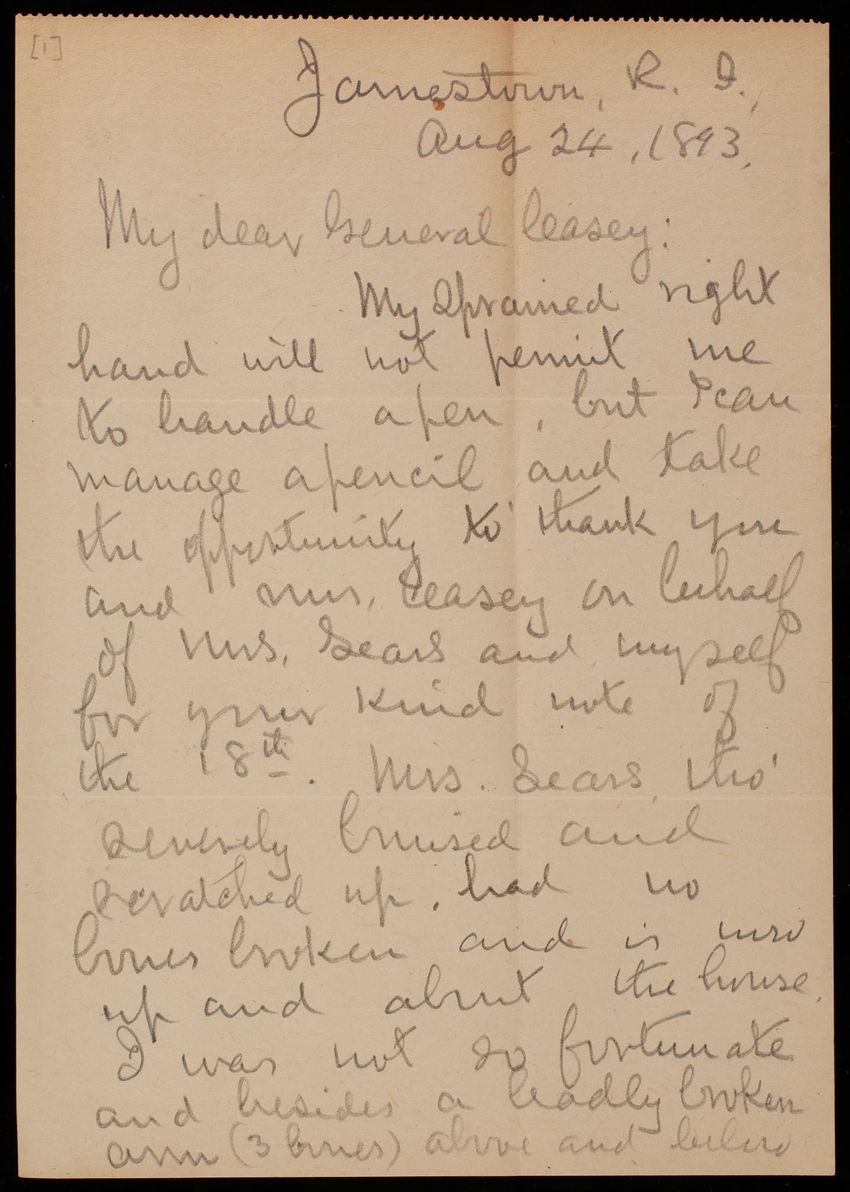 [1]
Jamestown, R. I.,
Aug 24, 1893.
My dear General Casey:
My sprained right
hand will not permit me
to handle a pen, but I can
manage a pencil and take
the opportunity to thank you
and Mrs. Casey on behalf
of Mrs. Sears and myself
for your kind note of
the 18th. Mrs. Sears, tho'
severely bruised and
scratched up, had no
bones broken and is now
up and about the house.
I was not so fortunate
and besides a badly broken
arm (3 bones) above and below